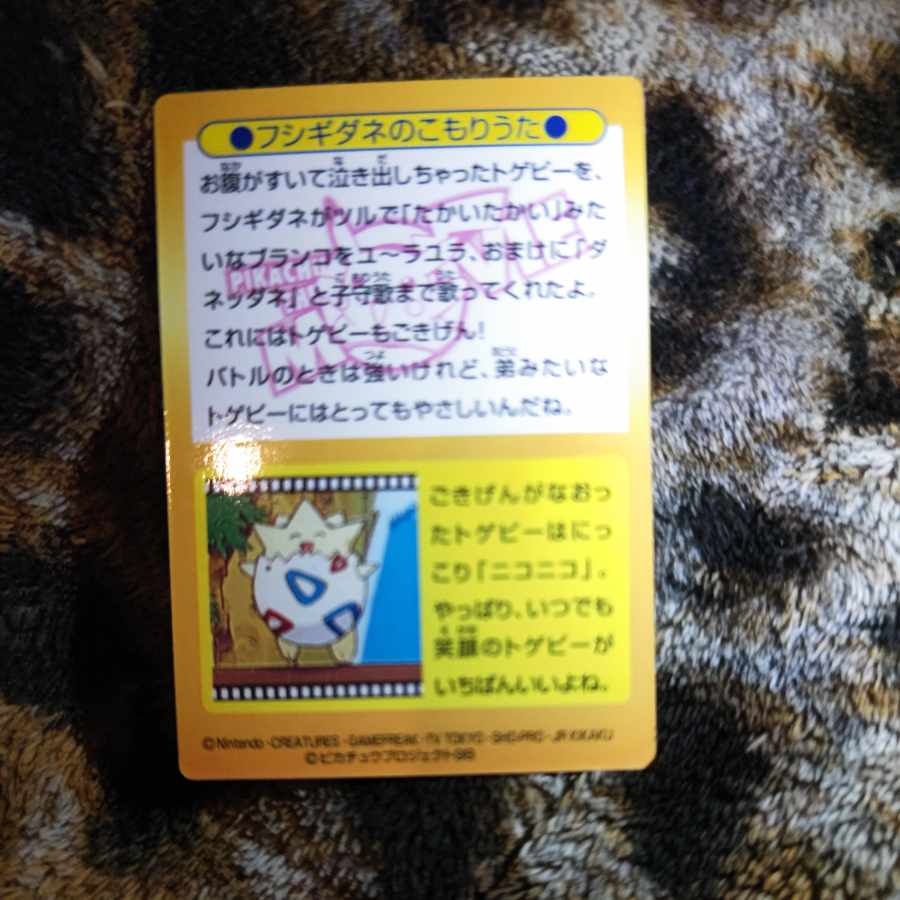 ●フシギダネのこもりうた●
お腹がすいて泣き出しちゃったトゲピーを、
フシギダネがツルで「たかいたかい」みた
いなブランコをユ〜ラユラ、おまけに「ダ
ネッダネ」と子守歌まで歌ってくれたよ。
これにはトゲピーもごきげん!
バトルのときは強いけれど、弟みたいな
トゲピーにはとってもやさしいんだね。
ごきげんがなおっ
たトゲピーはにっ
こり「ニコニコ」。
やっぱり、いつでも
笑顔のトゲピーが
いちばんいいよね。
©Nintendo・CREATURES・GAMEFREAK・TV TOKYO・SHO-PRO・JR KIKAKU
©ピカチュウプロジェクト98